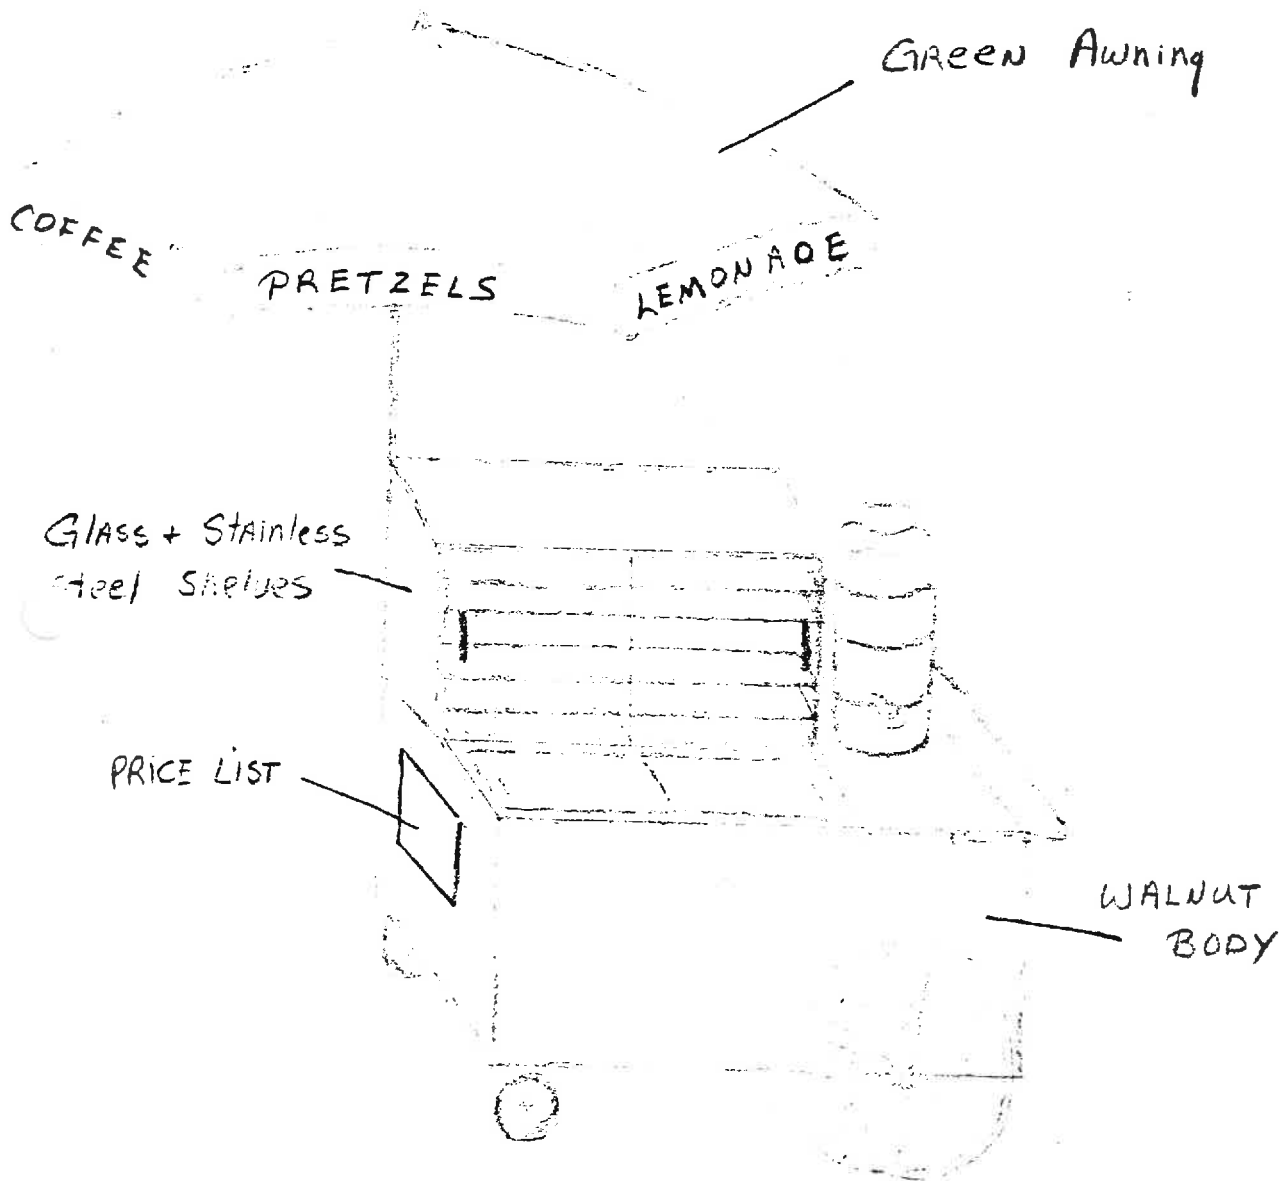 GREEN Awning
COFFEE
PRETZELS
LEMONADE
Glass + Stainless
steel Shelves
PRICE LIST
WALNUT
BODY